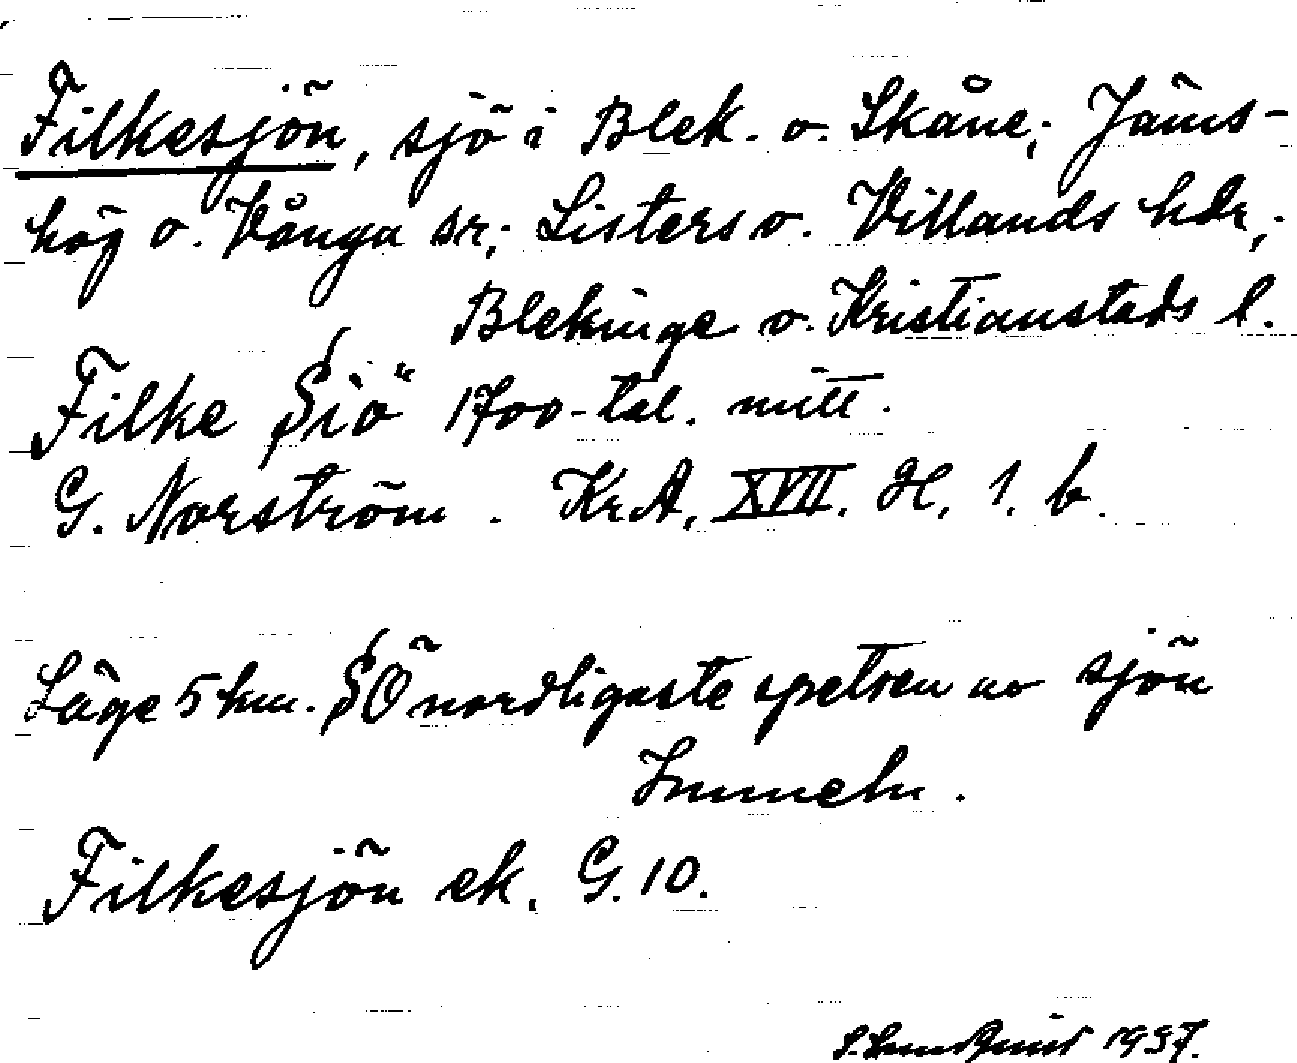 Filkesjön, sjö i Blek. o. Skåne; Jäms-
hög o. Vånga sr; Listers o. Villands hdr;
Blekinge o. Kristianstads l.
Filke Siö" 1700-tal. mitt.
G. Norström. KrA, XVII. H. 1. b.
Läge 5 km. SÖ nordligaste spetsen av sjön
Immeln.
Filkesjön ek. G. 10.
1937.